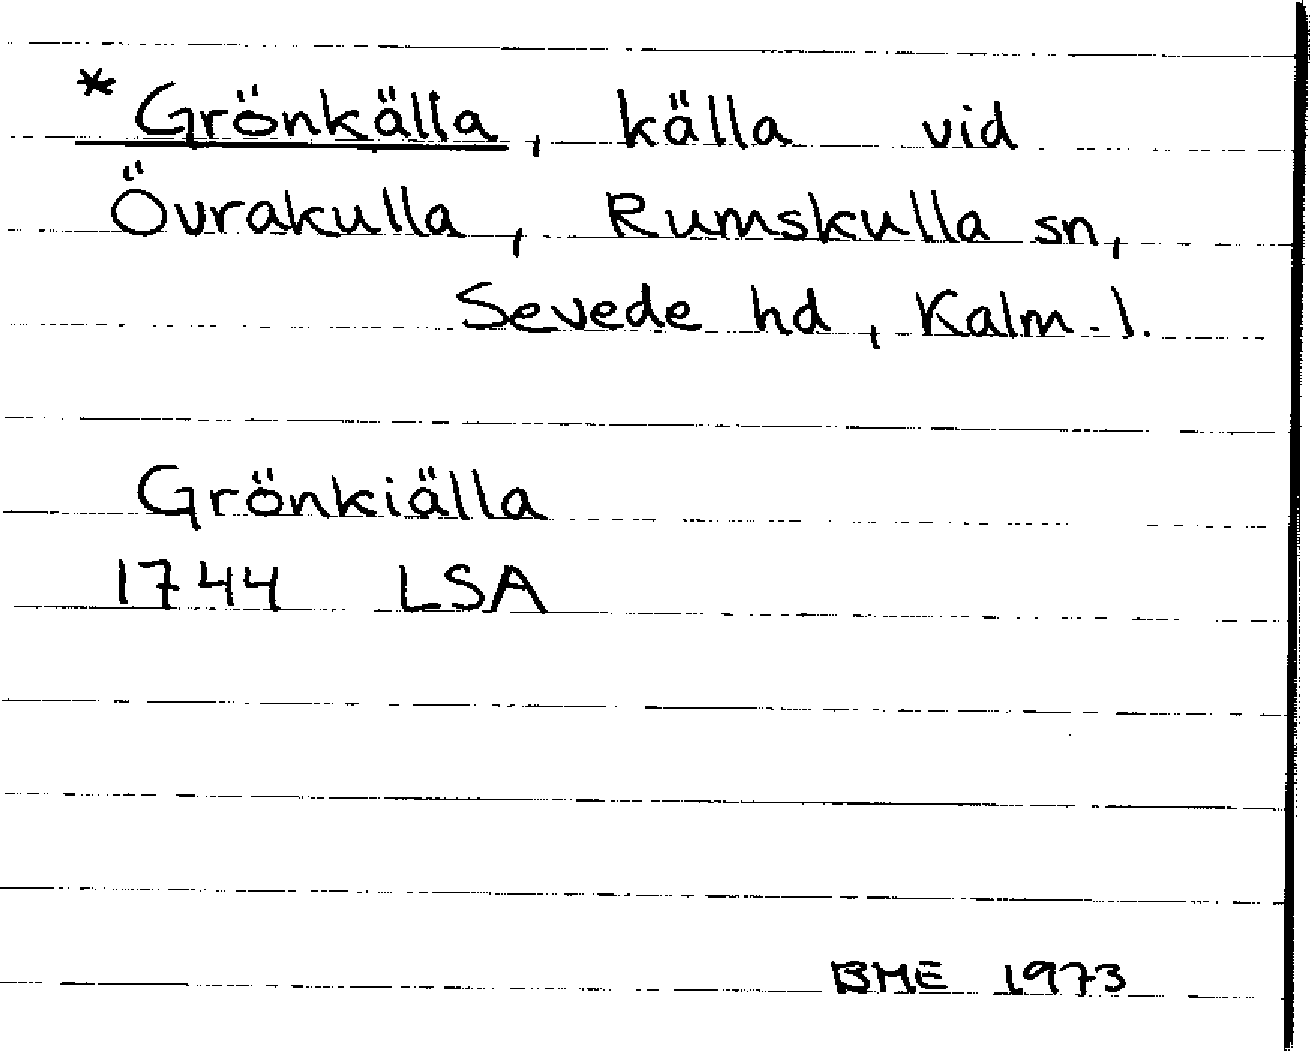 *Grönkälla, källa vid
Övrakulla, Rumskulla sn,
Sevede hd, Kalm. l.
Grönkiälla
1744 LSA
BME 1973